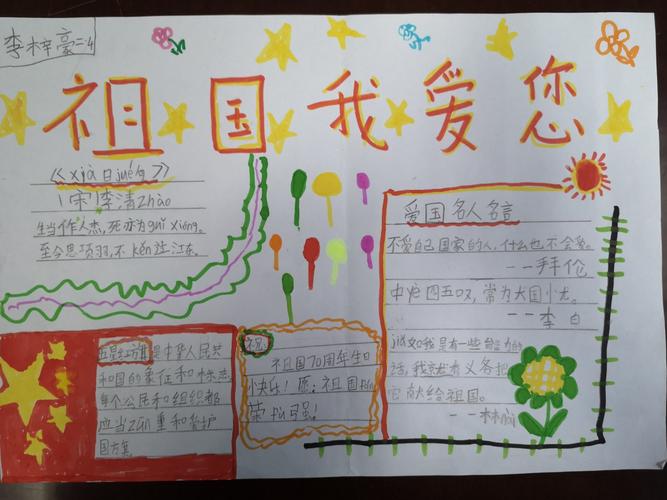 李梓豪二4
祖国我爱您
《xià日jué句》
(宋)李清zhào
生当作人杰,死亦为guǐ xióng。
至今思项羽,不kěn过江东。
爱国名人名言
不爱自己国家的人,什么也不会爱。
——拜伦
中夜四五叹,常为大国忧。
——李白
假如我是有一些能力的
话,我就有义务把
它献给祖国。
五星红旗是中华人民共
和国的象征和标志
每个公民和组织都
应当zūn重和爱护
国旗。
祝
祖国70周年生日
小快乐!愿:祖国fán
荣fù强!